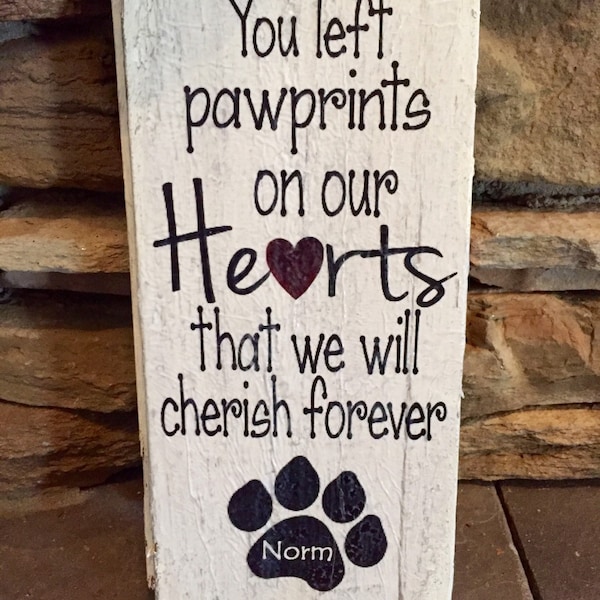 You left
pawprints
on our
Hearts
that we will
cherish forever
Norm